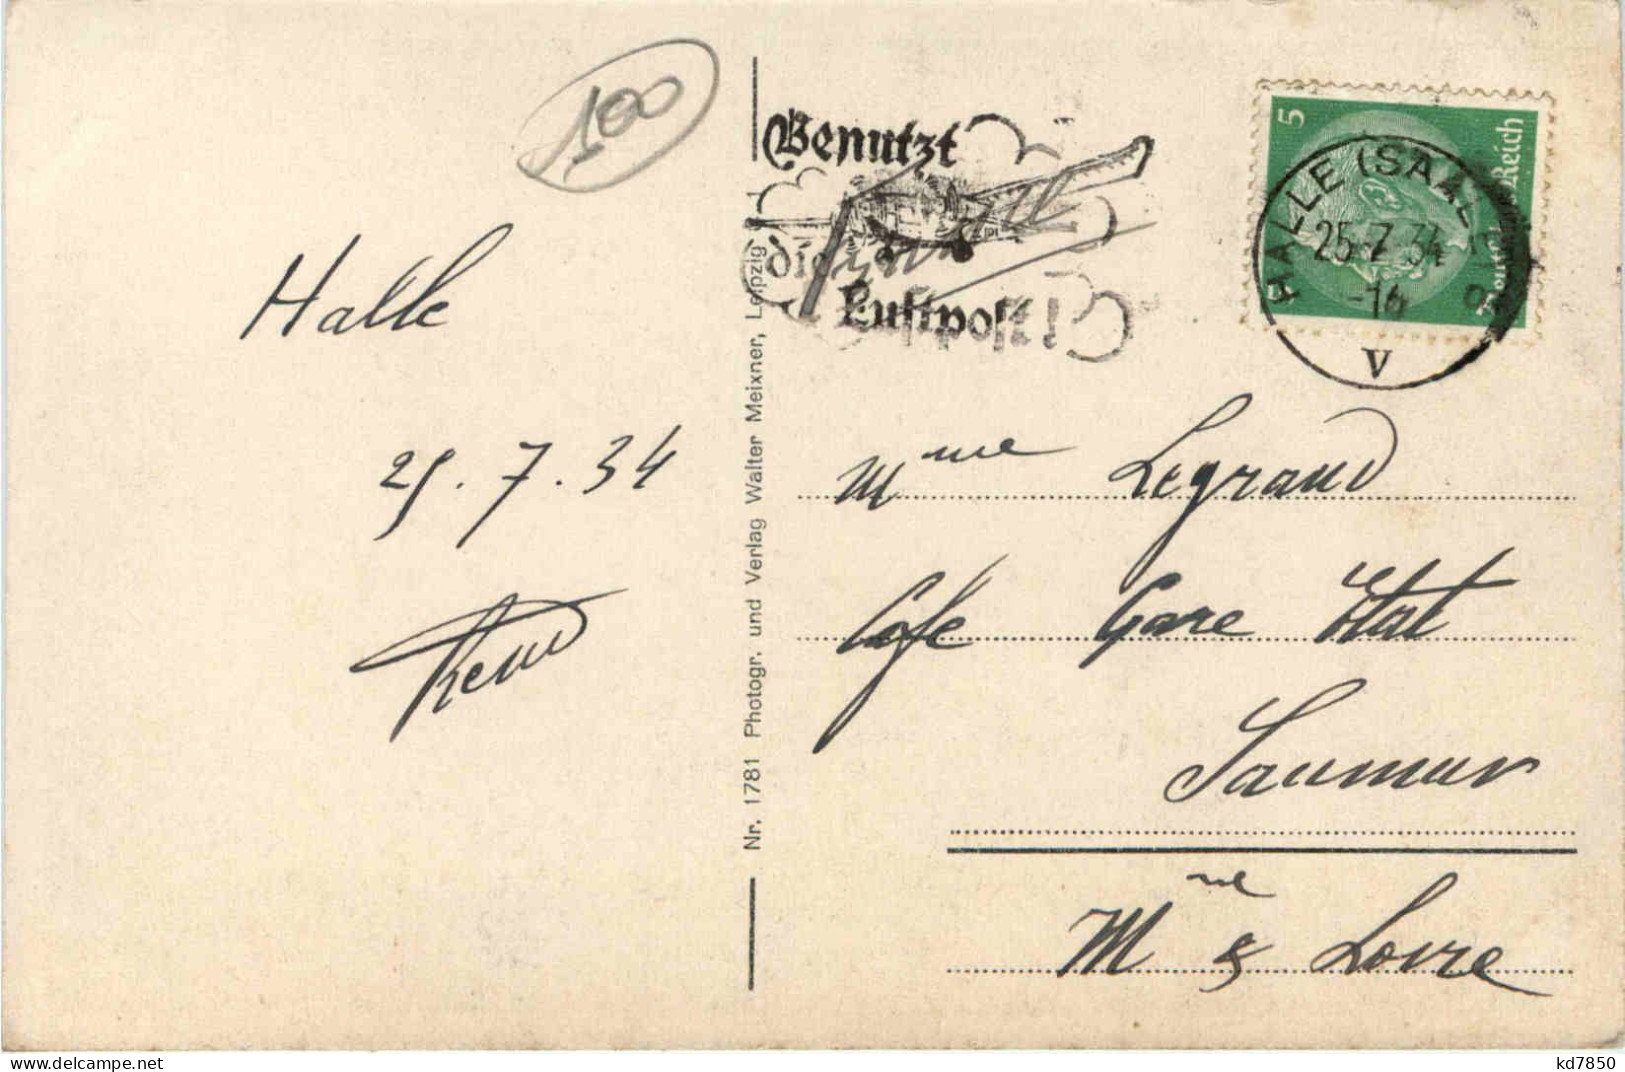 100
Halle
25.7.34
Benutzt
die
Luftpost
5
Deutsches Reich
HALLE (SAALE)
25.7.34
-16
V
Nr. 1781 Photogr. und Verlag Walter Meixner, Leipzig
Mme Legrand
Cafe Gare Etat
Saumur
Mne & Loire
delcampe.net
kd7850